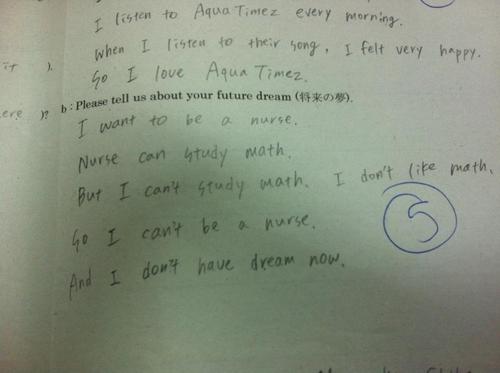 I listen to Aqua Timez every morning.
it ).
When I listen to their song, I felt very happy.
So I love Aqua Timez.
ere )?
b : Please tell us about your future dream (将来の夢).
I want to be a nurse.
Nurse can study math.
But I can't study math. I don't like math.
So I can't be a nurse.
5
And I don't have dream now.